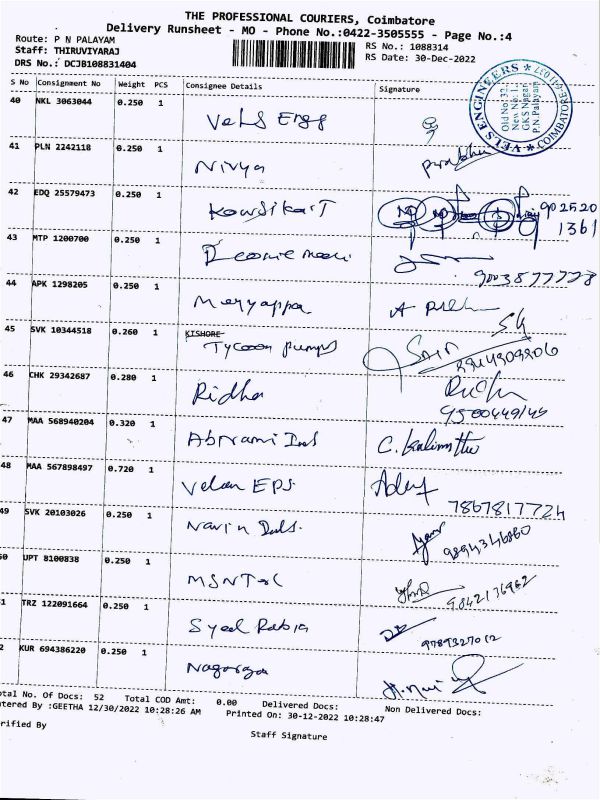 THE PROFESSIONAL COURIERS, Coimbatore
Delivery Runsheet - MO - Phone No.:0422-3505555 - Page No.:4
Route: P N PALAYAM
Staff: THIRUVIYARAJ
RS No.: 1088314
DRS No.: DCJB108831404
RS Date: 30-Dec-2022
S No Consignment No Weight PCS Consignee Details Signature
VELS ENGINEERS * COIMBATORE-641 037 *
Old No:32,
New No: 1,
GKS Nagar
P.N.Palayam
40 NKL 3063044 0.250 1 Vels Engg
41 PLN 2242118 0.250 1 Nivya Prabhu
42 EDQ 25579473 0.250 1 902520
1361
43 MTP 1200700 0.250 1 9003877778
44 APK 1298205 0.250 1 Meryappa
45 SVK 10344518 0.260 1 KISHORE
Tycoon Pumps
46 CHK 29342687 0.280 1 Ridha
47 MAA 568940204 0.320 1 Abirami Ind
48 MAA 567898497 0.720 1 Velan EPS 7867817724
49 SVK 20103026 0.250 1 Navin Inds. 9894346860
0 UPT 8100838 0.250 1 9842136962
1 TRZ 122091664 0.250 1 Syed Rabia 9789327012
2 KUR 694386220 0.250 1
otal No. Of Docs: 52 Total COD Amt: 0.00 Delivered Docs: Non Delivered Docs:
ntered By :GEETHA 12/30/2022 10:28:26 AM Printed On: 30-12-2022 10:28:47
rified By
Staff Signature